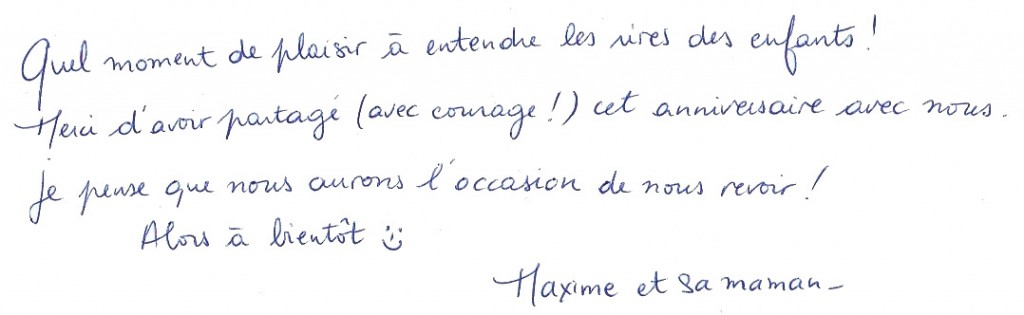 Quel moment de plaisir à entendre les rires des enfants !
Merci d'avoir partagé (avec courage !) cet anniversaire avec nous.
Je pense que nous aurons l'occasion de nous revoir !
Alors à bientôt :)
Maxime et sa maman -